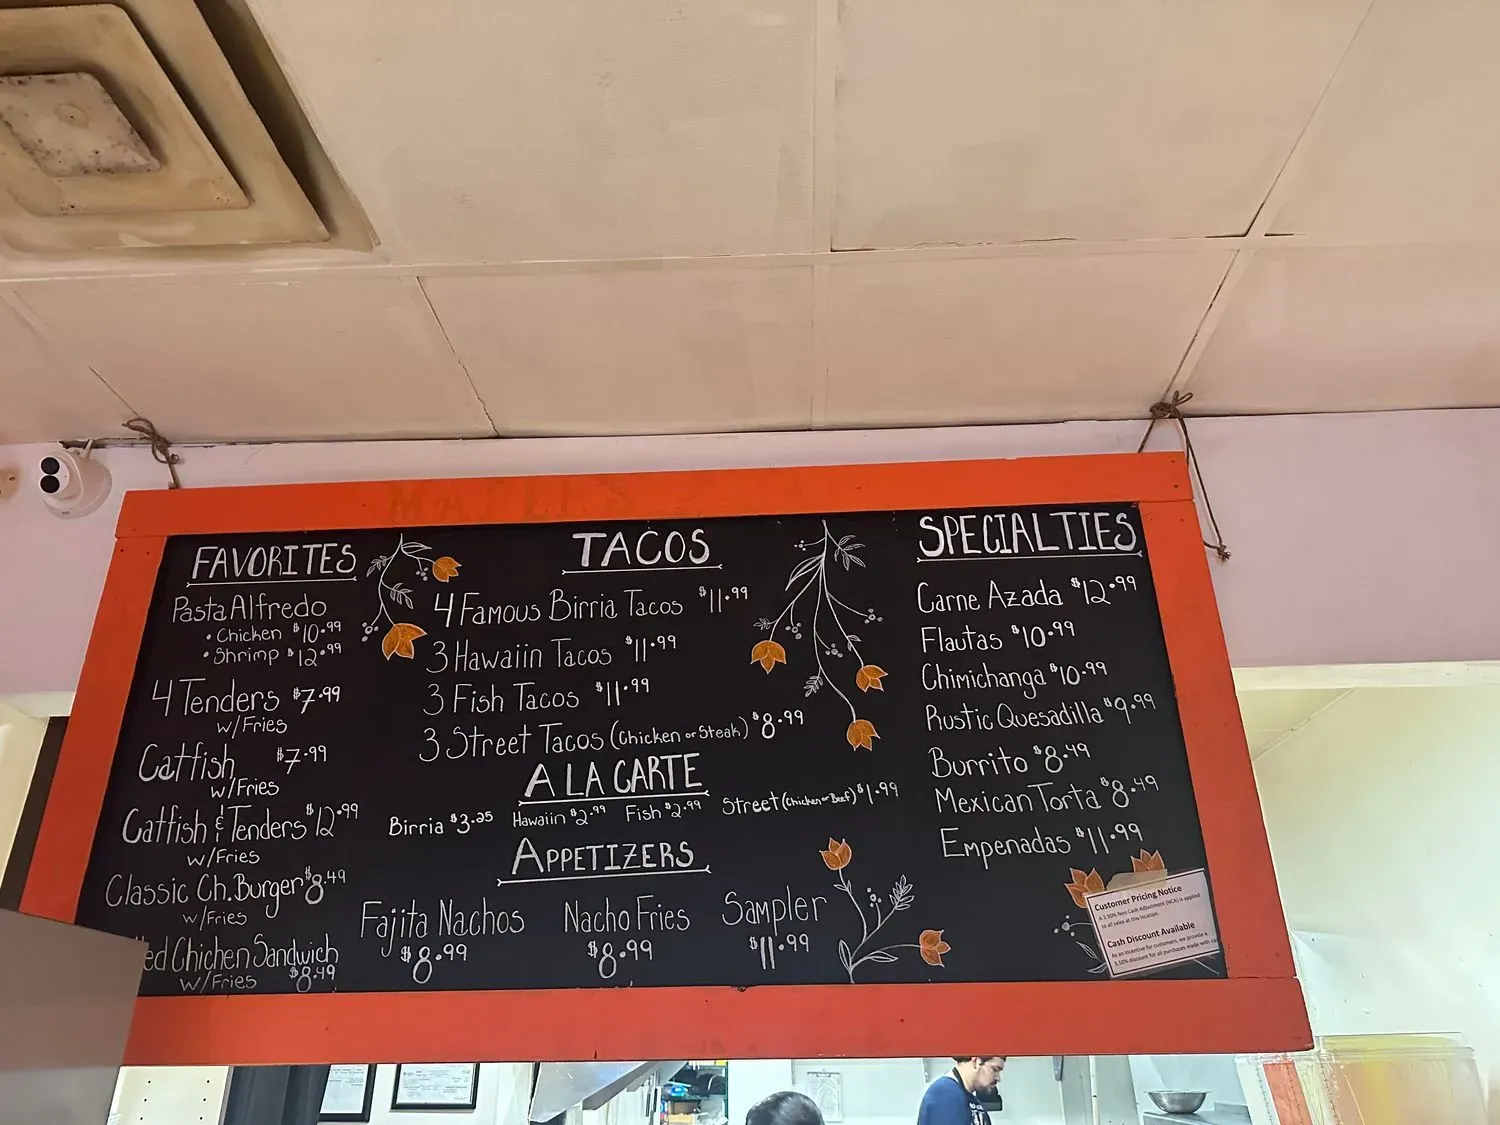 FAVORITES
Pasta Alfredo
• Chicken $10.99
• Shrimp $12.99
4 Tenders $7.99
w/Fries
Catfish $7.99
w/Fries
Catfish & Tenders $12.99
w/Fries
Classic Ch.Burger $8.49
w/Fries
Chicken Sandwich
w/Fries $8.49
TACOS
4 Famous Birria Tacos $11.99
3 Hawaiin Tacos $11.99
3 Fish Tacos $11.99
3 Street Tacos (Chicken or Steak) $8.99
A LA CARTE
Birria $3.25 Hawaiin $2.99 Fish $2.99 Street (Chicken or Beef) $1.99
APPETIZERS
Fajita Nachos Nacho Fries Sampler
$8.99 $8.99 $11.99
SPECIALTIES
Carne Azada $12.99
Flautas $10.99
Chimichanga $10.99
Rustic Quesadilla $9.99
Burrito $8.49
Mexican Torta $8.49
Empenadas $11.99
Customer Pricing Notice
A 3.50% Non Cash Adjustment (NCA) is applied
to all sales at this location.
Cash Discount Available
As an incentive for customers, we provide a
3.50% discount for all purchases made with